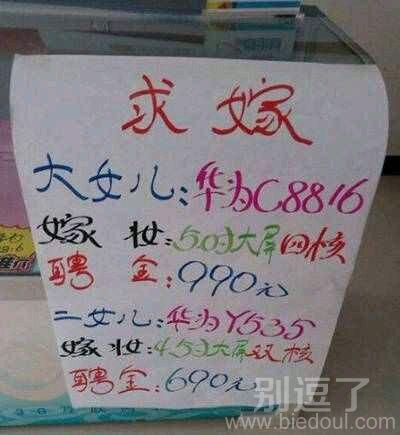 求嫁
大女儿:华为C8816
嫁妆:5.0吋大屏四核
聘金:990元
二女儿:华为Y535
嫁妆:4.5吋大屏双核
聘金:690元
别逗了
www.biedoul.com